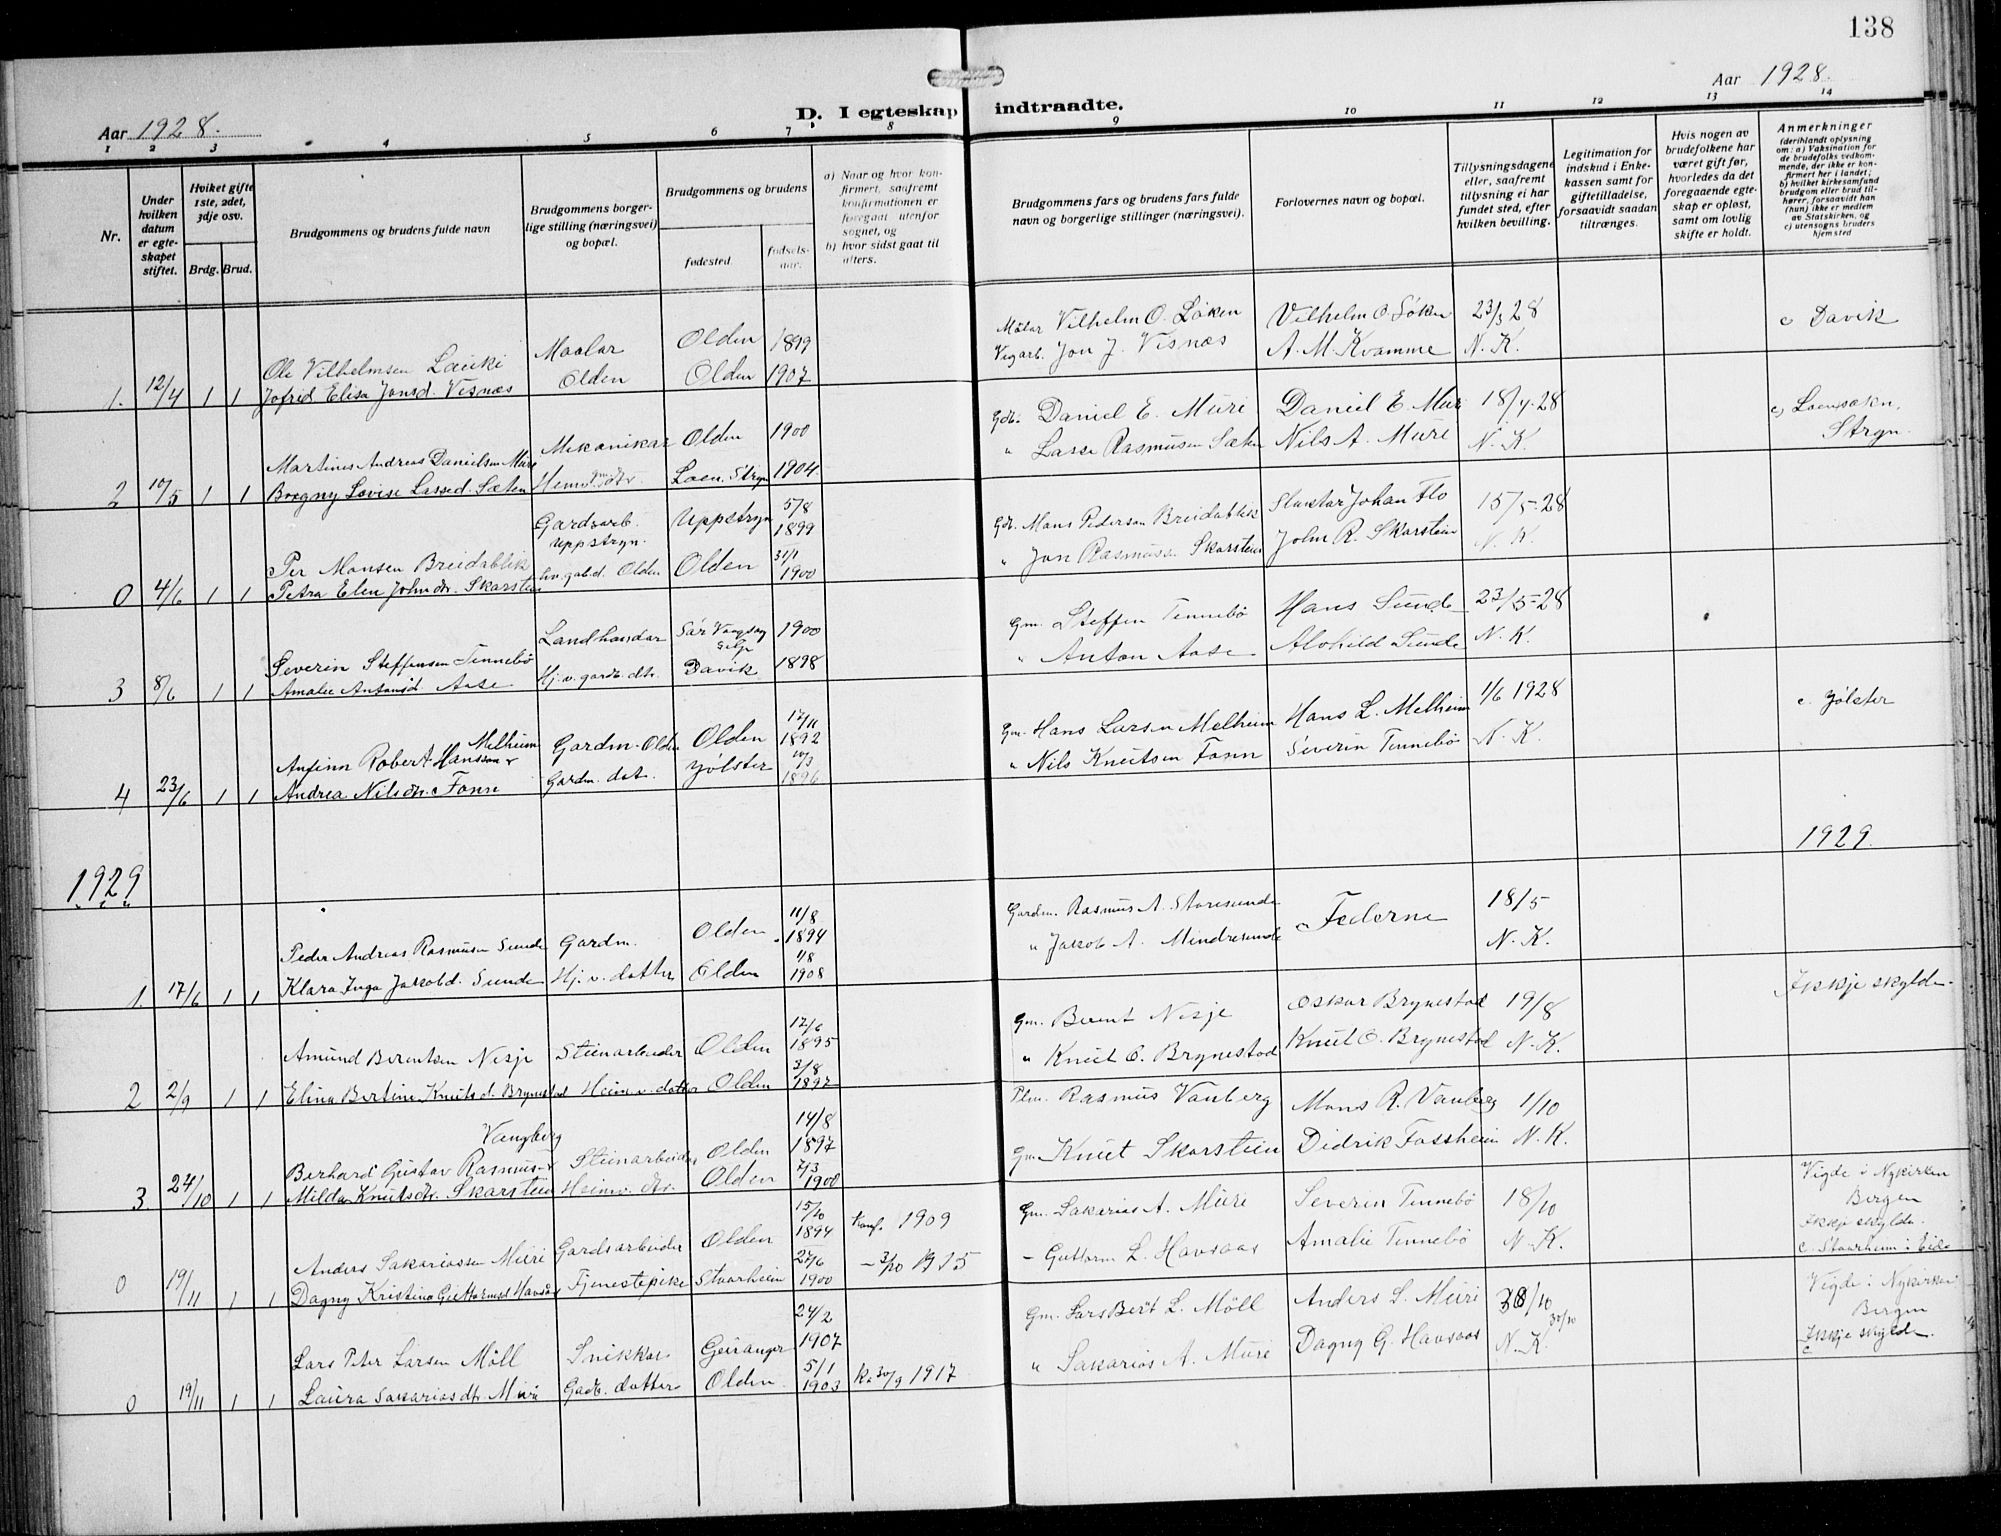 138
Aar 1928.
D. I egteskap indtraadte.
Aar 1928.
1 2 3 4 5 6 7 8 9 10 11 12 13 14
Nr.
Under hvilken datum er egteskapet stiftet.
Hviket gifte 1ste, 2det, 3dje osv.
Brdg. Brud.
Brudgommens og brudens fulde navn
Brudgommens borgerlige stilling (næringsvei) og bopæl.
Brudgommens og brudens
fødested.
fødselsaar.
a) Naar og hvor konfirmert, saafremt konfirmationen er foregaat utenfor sognet, og
b) hvor sidst gaat til alters.
Brudgommens fars og brudens fars fulde navn og borgerlige stillinger (næringsvei).
Forlovernes navn og bopæl.
Tillysningsdagene eller, saafremt tillysning ei har fundet sted, efter hvilken bevilling.
Legitimation for indskud i Enkekassen samt for giftetilladelse, forsaavidt saadan tiltrænges.
Hvis nogen av brudefolkene har været gift før, hvorledes da det foregaaende egteskap er opløst, samt om lovlig skifte er holdt.
Anmerkninger
(deriblandt oplysning om: a) Vaksination for de brudefolks vedkommende, der ikke er konfirmert her i landet; b) hvilket kirkesamfund brudgom eller brud tilhører, forsaavidt han (hun) ikke er medlem av Statskirken, og c) utensogns bruders hjemsted
Ole Vilhelmsen Maalar Olden 1899 Målar Vilhelm O. Løken Vilhelm O Løken 23/3 28 c Davik
1. 12/4 1 1 Jofrid Elisa Jonsd. Visnæs Olden Olden 1907 Vegarb. Jon J. Visnæs A. M. Kvamme N. K.
Martines Andreas Danielsen Muri Mekanikar Olden 1900 Gdb. Daniel E. Muri Daniel E. Muri 18/4-28 c, Loensokn,
2 10/5 1 1 Borgny Lovise Lassed. Sæten Loen. Stryn 1904 " Lasse Rasmusen Sæten Nils A. Muri N. K. Stryn.
Per Monsen Breidablik Gardsarb. Uppstryn. Uppstryn 5/8 1899 Gdb. Mons Pederson Breidablik Johan Flo 15/5-28
0 4/6 1 1 Petra Elen Johndtr. Skarstein Olden Olden 31/1 1900 " Jon Rasmuss. Skarstein John R. Skarstein N. K.
Severin Steffensen Tennebø Landhandlar Sør Vaagsøy Selje 1900 Gm. Steffen Tennebø Hans Sunde 23/5-28
3 8/6 1 1 Amalie Antonsd. Aase Hj. v. gardb. dtr. Davik 1898 " Anton Aase Alvhild Sunde N. K.
Anfinn Robert Hansson Melheim Gardm. Olden Olden 17/11 1892 Gm. Hans Larsen Melheim Hans L. Melheim 1/6 1928 c. Jølster
4 23/6 1 1 Andrea Nilsdtr. Fonn Gardm. dat. Jølster 10/3 1896 " Nils Knutsen Fonn Severin Tennebø N. K.
1929 1929
Peder Andreas Rasmusen Sunde Gardm. Olden 11/8 1894 Gardm. Rasmus A. Storesunde Federne 18/5
1. 17/6 1 1 Klara Inga Jakobd. Sunde Hj. v. datter Olden 1/8 1908 " Jakob A. Mindresunde N. K.
Amund Berentsen Nesje Steinarbeider Olden 12/6 1895 Gm. Berent Nesje Oskar Brynestad 19/8 Ikkje skylde.
2 2/9 1 1 Elina Bertine Knutsd. Brynestad Heimv. datter Olden 3/8 1897 " Knut O. Brynestad Knut O. Brynestad N. K.
Berhard Gustav Rasmus Vangberg Steinarbeider Olden 14/8 1897 Plm. Rasmus Vanberg Mons R. Vanberg 1/10
3 24/10 1 1 Milda Knutsdtr. Skarstein Heimv. dtr. Olden 7/3 1900 Gm. Knut Skarstein Didrik Fossheim N. K.
Anders Sakariassen Muri Gardsarbeider Olden 15/10 1894 konf. 1909 Gm. Sakarias A. Muri Severin Tennebø 18/10 Vigde i Nykirken Bergen
0 19/11 1 1 Dagny Kristina Guttormsd Havsaas Tjenestepike Staarheim 27/6 1900 - 3/10 1915 - Guttorm L. Havsaas Amalie Tennebø N. K. Ikkje skylde. c. Staarheim i Eid
Lars Peter Larsen Möll Snikkar Geiranger 24/2 1907 Gm. Lars Bert L. Möll Anders S. Muri 30/10 Vigde i Nykirken Bergen
0 19/11 1 1 Laura Sakariasdtr. Muri Gadb. datter Olden 5/1 1903 k. 30/9 1917 " Sakarias A. Muri Dagny G. Havsaas N. K. Ikkje skylde.